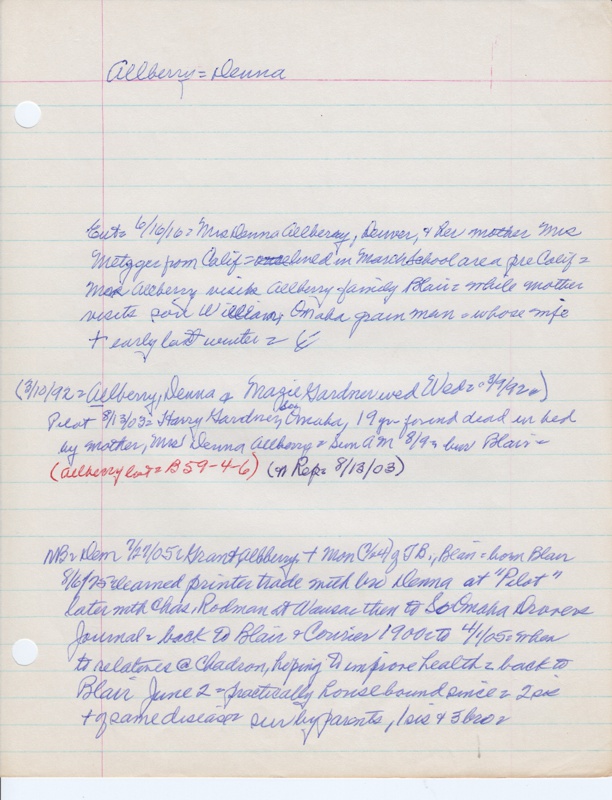 Allberry = Denna
Ent = 6/16/16 = Mrs Denna Allberry, Denver, & her mother Mrs
Metzger from Calif = lived in March school area pre Calif =
Mrs Allberry visits Allberry family Blair = while mother
visits son William, Omaha grain man = whose wife
+ early last winter =
(3/10/92 = Allberry, Denna & Mazie Gardner wed Wed = 3/9/92 =)
Pilot 8/13/03 = Harry Gardner, So Omaha, 19 yr found dead in bed
by mother, Mrs Denna Allberry = Sun AM 8/9 = bur Blair =
(Allberry lot = B59-4-6) (+ Rep = 8/13/03)
NB = Dem 7/27/05 = Grant Allberry, + Mon (24) of TB., Blair = born Blair
8/6/75 = learned printer trade with bro Denna at "Pilot"
later with Chas. Rodman at Wausa = then to So Omaha Drovers
Journal = back to Blair & Courier 1900 = to 4/1/05 = when
to relatives @ Chadron, hoping to improve health = back to
Blair June 2 = practically housebound since = 2 sis
+ of same disease = sur by parents, 1 sis & 3 bro =